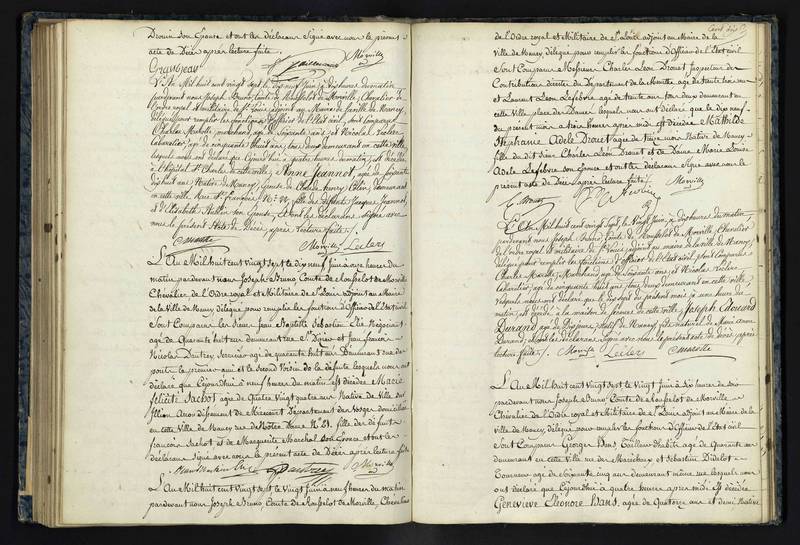 Drouin son Epouse et ont les déclarans Signé avec nous le présent
acte de Décès après lecture faite.
Morville
Grandjean
L'An Mil huit cent vingt sept le dix neuf Juin, à dix heures du matin,
pardevant nous Joseph, Bruno, Comte de Rousselot de Morville, Chevalier de
l'ordre royal et militaire de St Louis, adjoint au Maire de la ville de Nancy,
délégué pour remplir les fonctions d'officier de l'Etat civil, sont comparus
Charles Marotte, marchand, agé de soixante ans, et Nicolas Leclerc
Cabaretier, agé de cinquante huit ans, tous deux demeurant en cette ville,
lesquels nous ont déclaré que ce jourd'hui à quatre heures du matin, est décédée
à l'hôpital St Charles de cette ville, Anne Jeannot, agée de soixante
dix huit ans, Native de Nancy, Epouse de Claude, henry, demeurant
en cette ville, rue St François, fille des défunts Jacques Jeannot,
et d'Elisabeth son Epouse, et ont les déclarans signé avec
nous le présent Acte de Décès, après lecture faite.
Marotte Morville Leclerc
L'An Mil huit cent vingt sept le dix neuf Juin à onze heures du
matin pardevant nous Joseph Bruno, Comte de Rousselot de Morville
Chevalier, de l'Ordre royal et Militaire de St Louis adjoint au Maire
de la Ville de Nancy délégué pour remplir les fonctions d'Officier de l'Etat civil
Sont Comparus les Sieurs Jean Baptiste Sébastien Elie Négociant
agé de Quarante huit ans demeurant rue St Dizier et Jean françois
Nicolas Dautrey, agé de quarante huit ans Demeurant rue du
pont le premier ami et le Second Voisin de la défunte lesquels nous ont
déclaré que Cejourdhui à neuf heures du matin est décédée Marie
félicité Sachot agée de Quatre Vingt quatre ans Native de Ville sur
Illion Arrondissement de Mirecourt Département des Vosges domiciliée
en cette Ville de Nancy rue de Notre Dame No 21. fille des défunts
françois Sachot et de Marguerite Marchal son Epouse et ont les
déclarans Signé avec nous le présent acte de Décès après lecture faite
Dautrey Morville
L'An Mil huit cent vingt sept le Vingt Juin à neuf heures du matin
pardevant nous Joseph Bruno, Comte de Rousselot de Morville, Chevalier
de l'Ordre royal et Militaire de St Louis adjoint au Maire de la
Ville de Nancy délégué pour remplir les fonctions d'Officier de l'Etat civil
Sont Comparus Messieurs Charles Léon Drouet Inspecteur des
Contributions directes du Département de la Meurthe agé de trente trois ans
et Laurent Leon Lefebvre agé de trente ans tous deux demeurant en
cette Ville, place de lesquels nous ont déclaré que le dix neuf
du présent mois à trois heures après midi est décédée Mathilde
Stephanie Adèle Drouet agée de treize mois Native de Nancy
fille du dit Sieur Charles Léon Drouet et de Dame Marie Louise
Adèle Lefebvre son Epouse et ont les déclarans Signé avec nous le
présent acte de Décès après lecture faite.
Drouet Morville
L'An Mil huit cent vingt sept le vingt Juin, à dix heures du matin,
pardevant nous Joseph, Bruno, Comte de Rousselot de Morville, Chevalier
de l'ordre royal et militaire de St Louis, adjoint au maire de la ville de Nancy,
délégué pour remplir les fonctions d'officier de l'Etat civil, sont comparus
Charles Marotte, Marchand, agé de soixante ans, et Nicolas Leclerc
Cabaretier, agé de cinquante huit ans, tous deux demeurant en cette ville,
lesquels nous ont déclaré que le dix sept du présent mois, à une heure du
matin, est décédé à la maison de secours de cette ville, Joseph Edouard
Durand, agé de dix jours, natif de Nancy, fils naturel de Marie Anne
Durand, et ont les déclarans signé avec nous le présent acte de décès, après
lecture faite. Morville Leclerc Marotte
L'An Mil huit cent vingt sept le Vingt Juin à dix heures du
pardevant nous Joseph Bruno, Comte de Rousselot de Morville
Chevalier de l'Ordre royal et Militaire de St Louis adjoint au Maire de la
Ville de Nancy, délégué pour remplir les fonctions d'Officier de l'Etat civil
Sont Comparus George Hans Tailleur d'habits agé de Quarante ans
demeurant en cette Ville rue des Maréchaux et Sébastien Didelot
Tourneur agé de Soixante cinq ans demeurant même rue lesquels nous
ont déclaré que Cejourdhui à quatre heures après midi est décédée
Geneviève Eléonore Hans, agée de Quatorze ans et demi Native